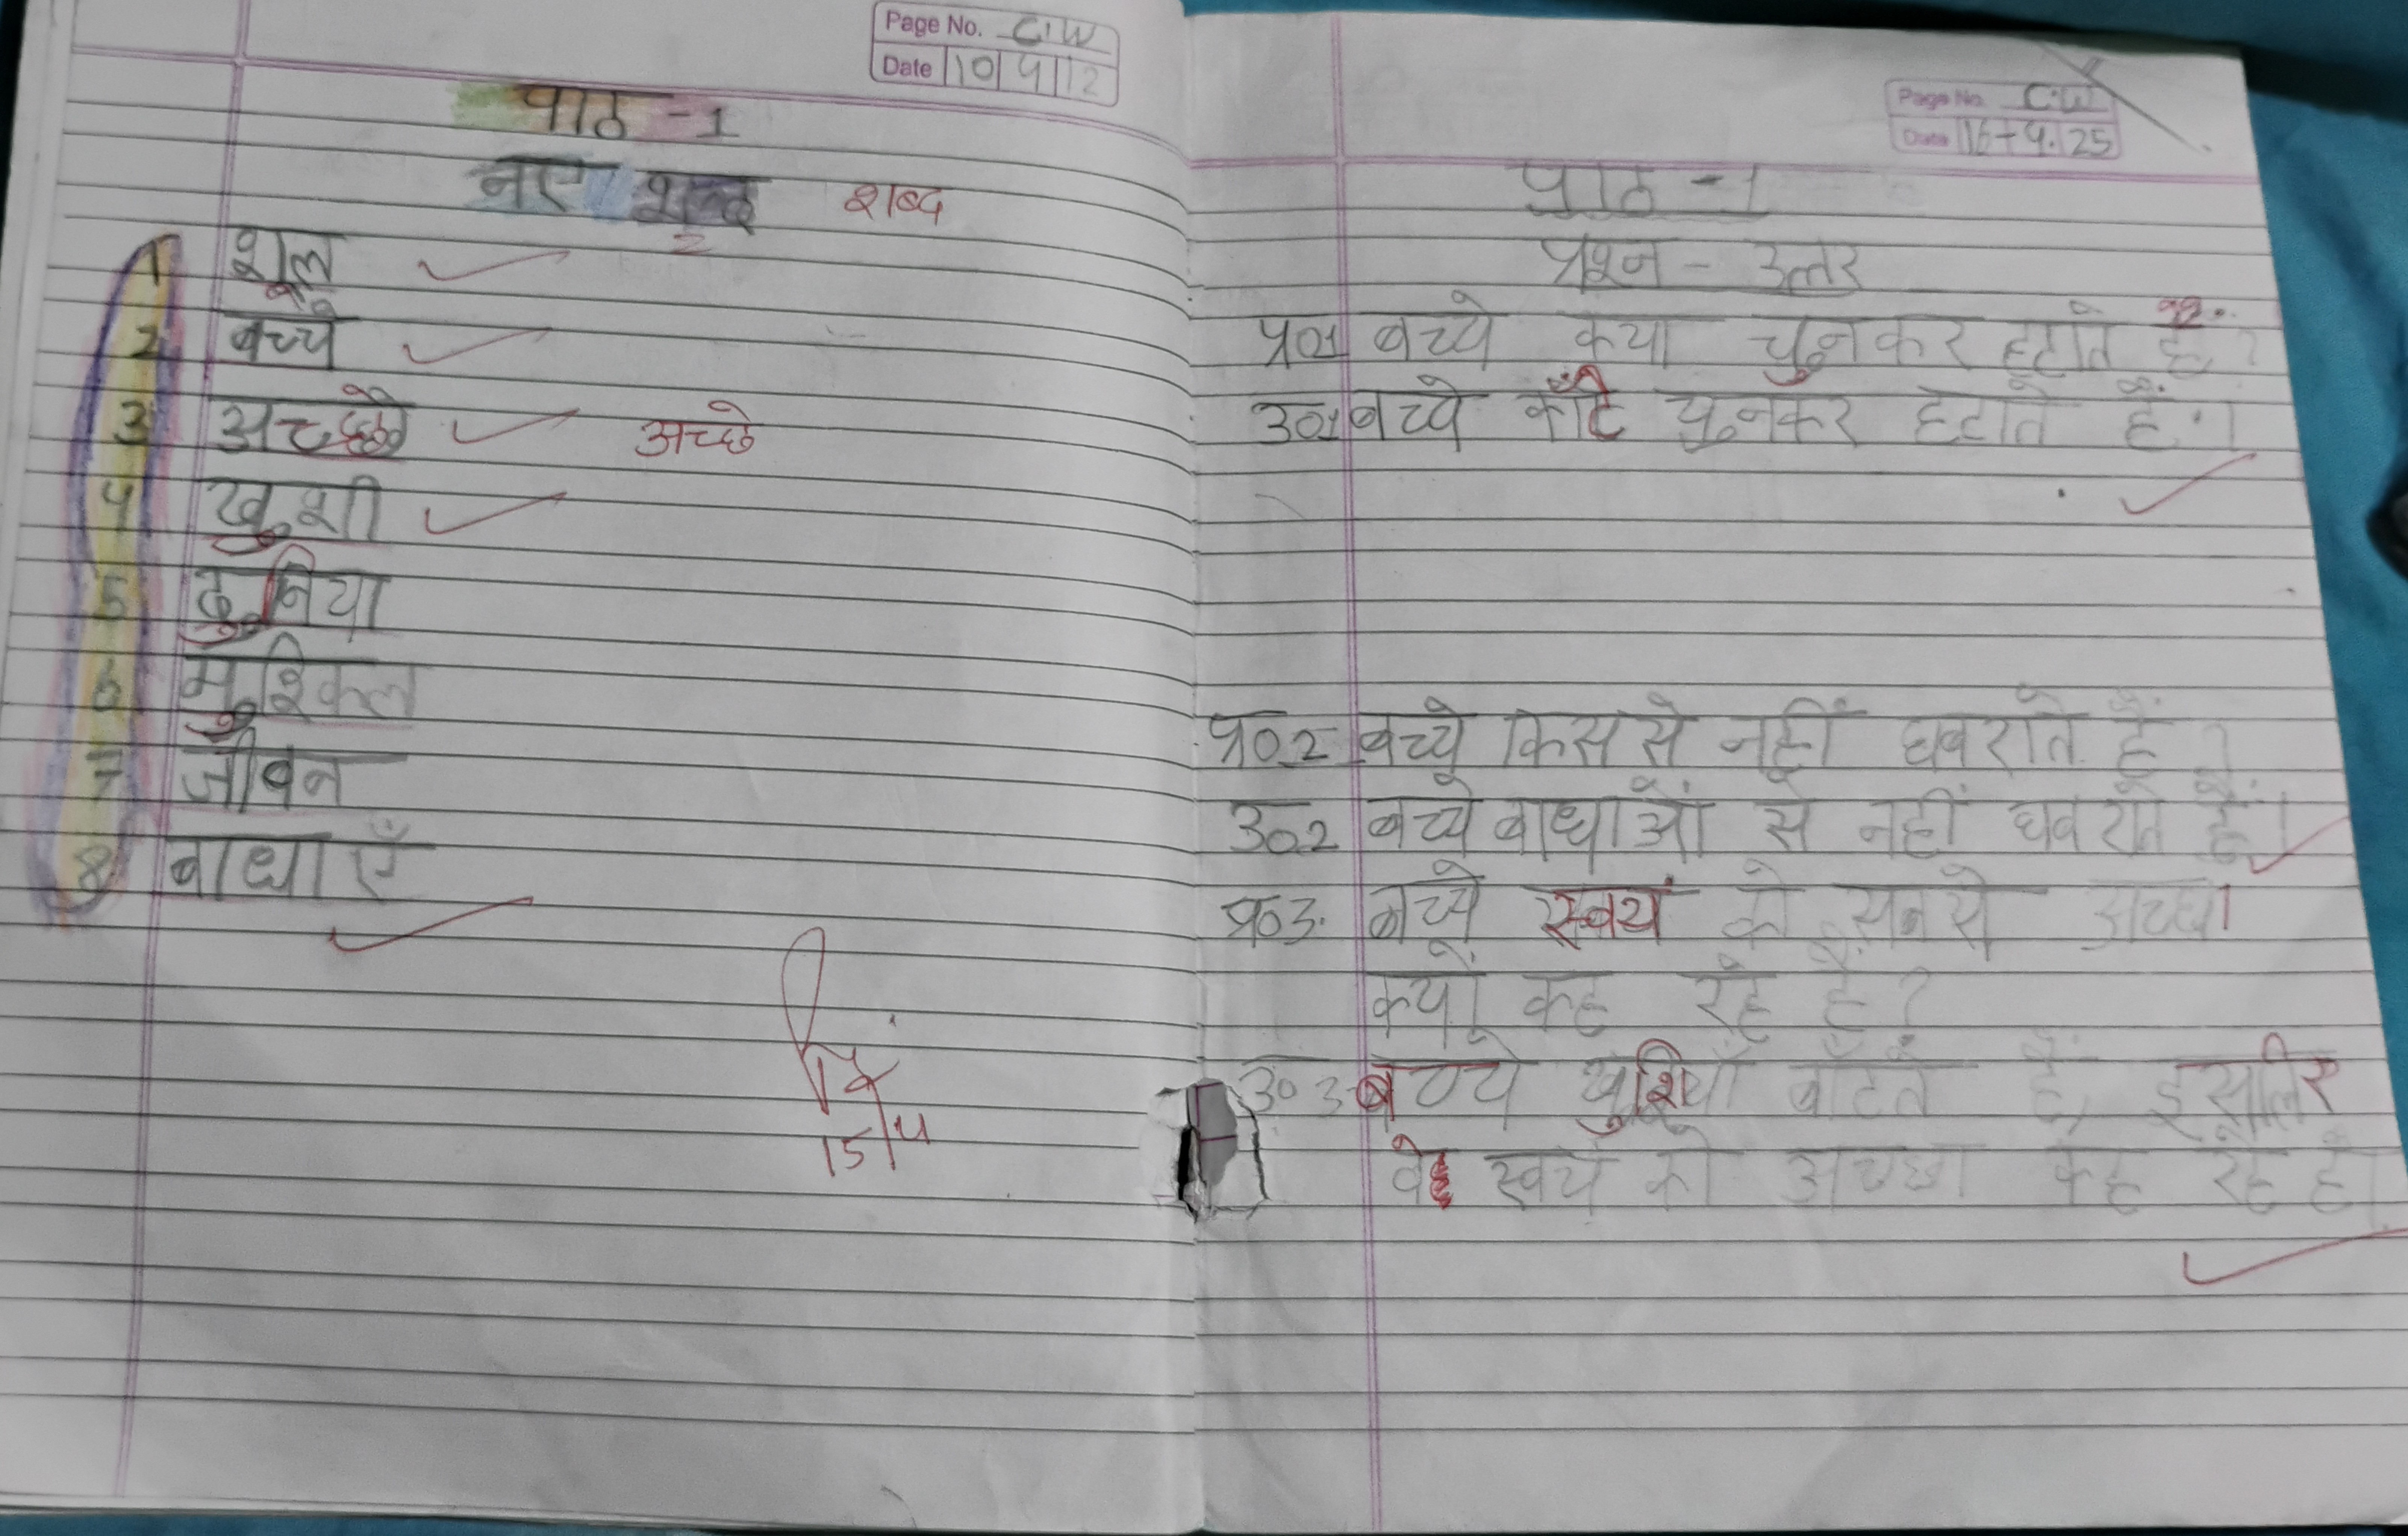 Page No. C.W
Date 10 4 12
पाठ -1
नए शब्द शब्द
1 शूल
2 बच्चे
3 अच्छे अच्छे
4 खुशी
5 दुनिया
6 मुश्किल
7 जीवन
8 बाधाएँ
15/4
Page No. C.W
Date 16-4.25
पाठ -1
प्रश्न - उत्तर
प्र01 बच्चे क्या चुनकर हटाते हैं?
उ01 बच्चे काँटे चुनकर हटाते हैं।
प्र0.2 बच्चे किस से नहीं घबराते हैं?
उ02 बच्चे बाधाओं से नहीं घबराते हैं।
प्र03. बच्चे स्वयं को सबसे अच्छा
क्यों कह रहे हैं?
उ03. बच्चे खुशियाँ बाँटते हैं, इसलिए
वे स्वयं को अच्छा कह रहे हैं।